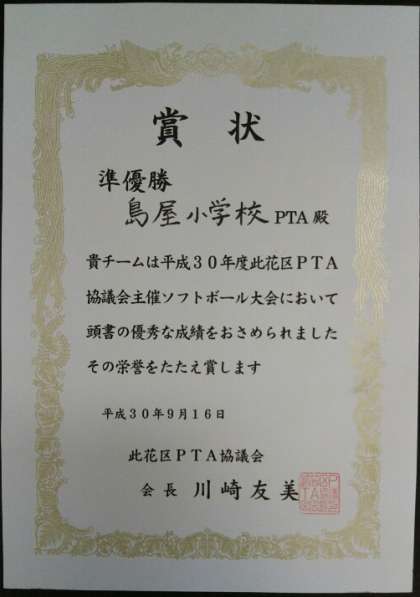 賞状
準優勝
島屋小学校 PTA 殿
貴チームは平成30年度此花区PTA
協議会主催ソフトボール大会において
頭書の優秀な成績をおさめられました
その栄誉をたたえ賞します
平成30年9月16日
此花区PTA協議会
会長 川崎友美